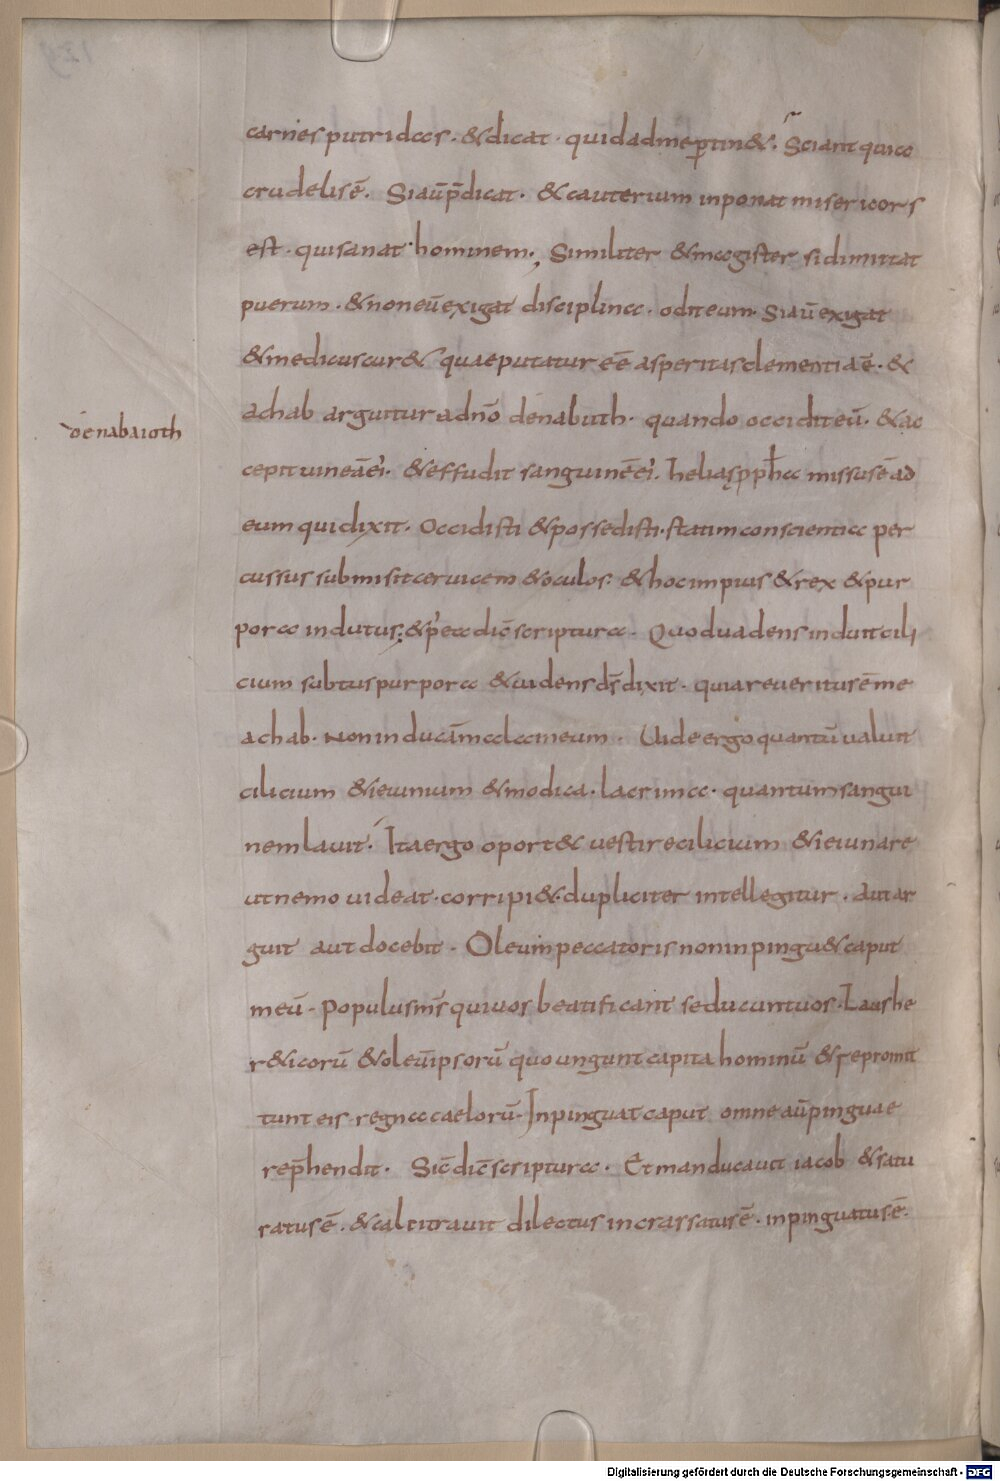 carnes putridas · & dicat · quid ad me ꝑtin& · Sciant quia
crudelis ē̄ · Si aū p̄dicat · & cauterium inponat misericors
est · qui sanat hominem ·, Similiter & magister si dimittat
puerum · & non eū exigat disciplina · odit eum · Si aū exigat
& medicus cur& quae putatur ēē asperitas clementia ē · &
achab arguitur a dn̄o de nabuth · quando occidit eū · & ac
de nabaioth
cepit uineā ei · & effudit sanguinē ei · helias ꝓph̄a missus ē ad
eum qui dixit · Occidisti & possedisti · statim conscientia per
cussus submisit ceruicem & oculos · & hoc impius & rex & pur
pora indutus ; & p̓ea dic̄ scriptura · Quod uadens induit cili
cium subtus purpora & uidens ds̄ dixit · quia reueritus ē me
achab · Non inducā mala in eum · Uide ergo quantū ualuit
cilicium & ieiunium & modica · lacrima · quantum sangui
nem lauit · Ita ergo oport& uestire cilicium & ieiunare
ut nemo uideat · corripi& · dupliciter intellegitur · aut ar
guit aut docebit · Oleum peccatoris non inpingu& caput
meū · populus ms̄ qui uos beatificant seducunt uos · Laus he
r&icorū & oleū ipsorū quo ungunt capita hominū & repromit
tunt eis · regna caelorū · Inpinguat caput omne aū pinguae
rep̄hendit · Sic̄ dic̄ scriptura · Et manducauit iacob & satu
ratus ē · & calcitrauit dilectus incrassatus ē · inpinguatus ē ·
Digitalisierung gefördert durch die Deutsche Forschungsgemeinschaft - DFG